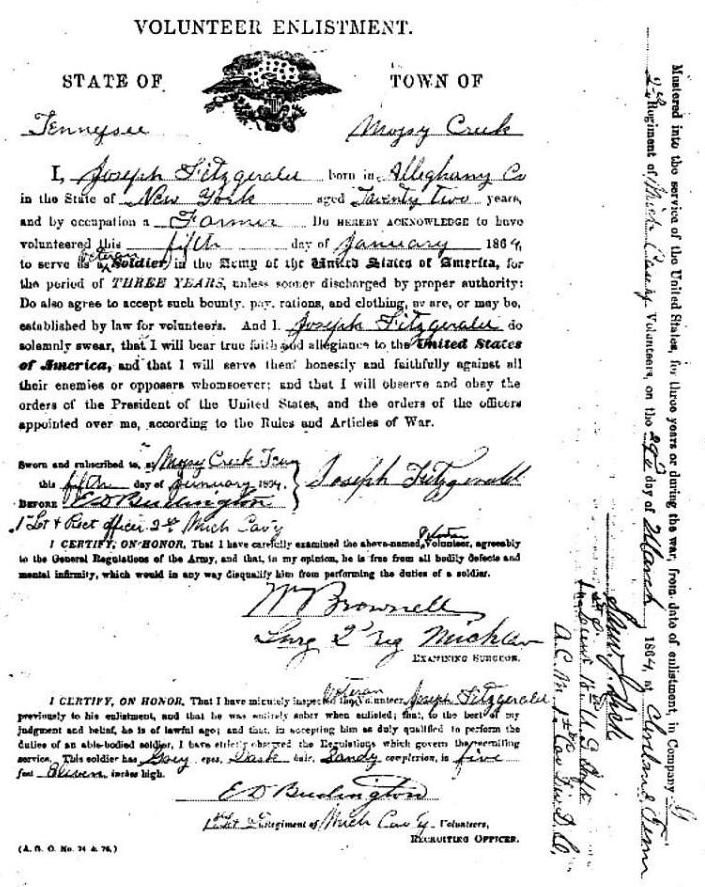 VOLUNTEER ENLISTMENT.
STATE OF TOWN OF
Tennessee Mossy Creek
I, Joseph Fitzgerald born in Alleghany Co
in the State of New York aged Twenty Two years,
and by occupation a Farmer Do HEREBY ACKNOWLEDGE to have
volunteered this fifth day of January 1864,
to serve as a Veteran Soldier in the Army of the United States of America, for
the period of THREE YEARS, unless sooner discharged by proper authority:
Do also agree to accept such bounty, pay, rations, and clothing, as are, or may be,
established by law for volunteers. And I, Joseph Fitzgerald do
solemnly swear, that I will bear true faith and allegiance to the United States
of America, and that I will serve them honestly and faithfully against all
their enemies or opposers whomsoever; and that I will observe and obey the
orders of the President of the United States, and the orders of the officers
appointed over me, according to the Rules and Articles of War.
Sworn and subscribed to, at Mossy Creek Tenn
this fifth day of January 1864, Joseph Fitzgerald
BEFORE E D Burlington
1st Lt & Rect officer 2d Mich Cav'y
I CERTIFY, ON HONOR, That I have carefully examined the above-named Veteran Volunteer, agreeably
to the General Regulations of the Army, and that, in my opinion, he is free from all bodily defects and
mental infirmity, which would in any way disqualify him from performing the duties of a soldier.
W Brownell
Surg 2d reg Mich Cav
EXAMINING SURGEON.
I CERTIFY, ON HONOR, That I have minutely inspected the Veteran Volunteer, Joseph Fitzgerald
previously to his enlistment, and that he was entirely sober when enlisted; that, to the best of my
judgment and belief, he is of lawful age; and that, in accepting him as duly qualified to perform the
duties of an able-bodied soldier, I have strictly observed the Regulations which govern the recruiting
service. This soldier has Grey eyes, Dark hair, Sandy complexion, is five
feet Eleven inches high.
E D Burlington
1st Lt 2d Regiment of Mich Cav'y Volunteers,
RECRUITING OFFICER.
(A. G. O. No. 74 & 76.)
Mustered into the service of the United States, for three years or during the war, from date of enlistment, in Company G
2d Regiment of Mich Cavalry Volunteers, on the 29th day of March 1864, at Cleveland, Tenn
Sam. J. Dick
A.C.M. 1st Cav Div D.O.